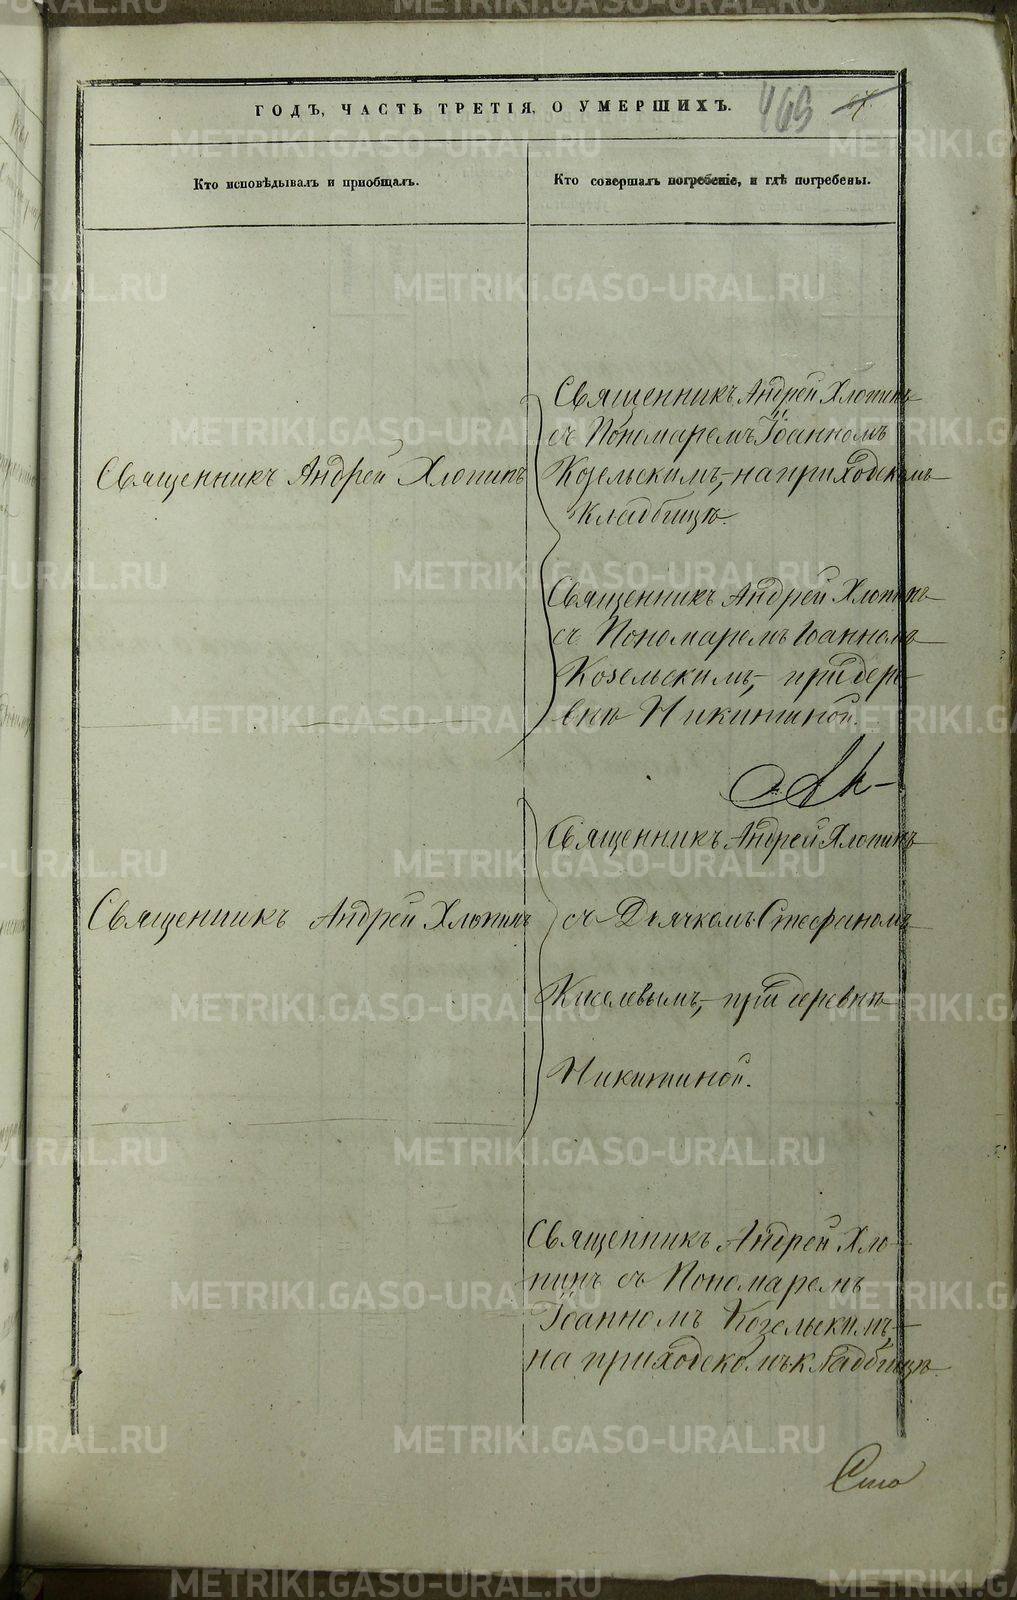 ГОДЪ, ЧАСТЬ ТРЕТІЯ, О УМЕРШИХЪ.
469
Кто исповѣдывалъ и пріобщалъ.
Кто совершалъ погребеніе, и гдѣ погребены.
Священникъ Андрей Хлопинъ
съ Пономаремъ Іоанномъ
Козельскимъ, на приходскомъ
кладбищѣ.
Священникъ Андрей Хлопинъ
Священникъ Андрей Хлопинъ
съ Пономаремъ Іоанномъ
Козельскимъ, при дере-
внѣ Никитиной.
Священникъ Андрей Хлопинъ
Священникъ Андрей Хлопинъ
съ Дьячкомъ Стефаномъ
Киселевымъ, при деревнѣ
Никитиной.
Священникъ Андрей Хло-
пинъ съ Пономаремъ
Іоанномъ Козельскимъ,
на приходскомъ кладбищѣ.
METRIKI.GASO-URAL.RU